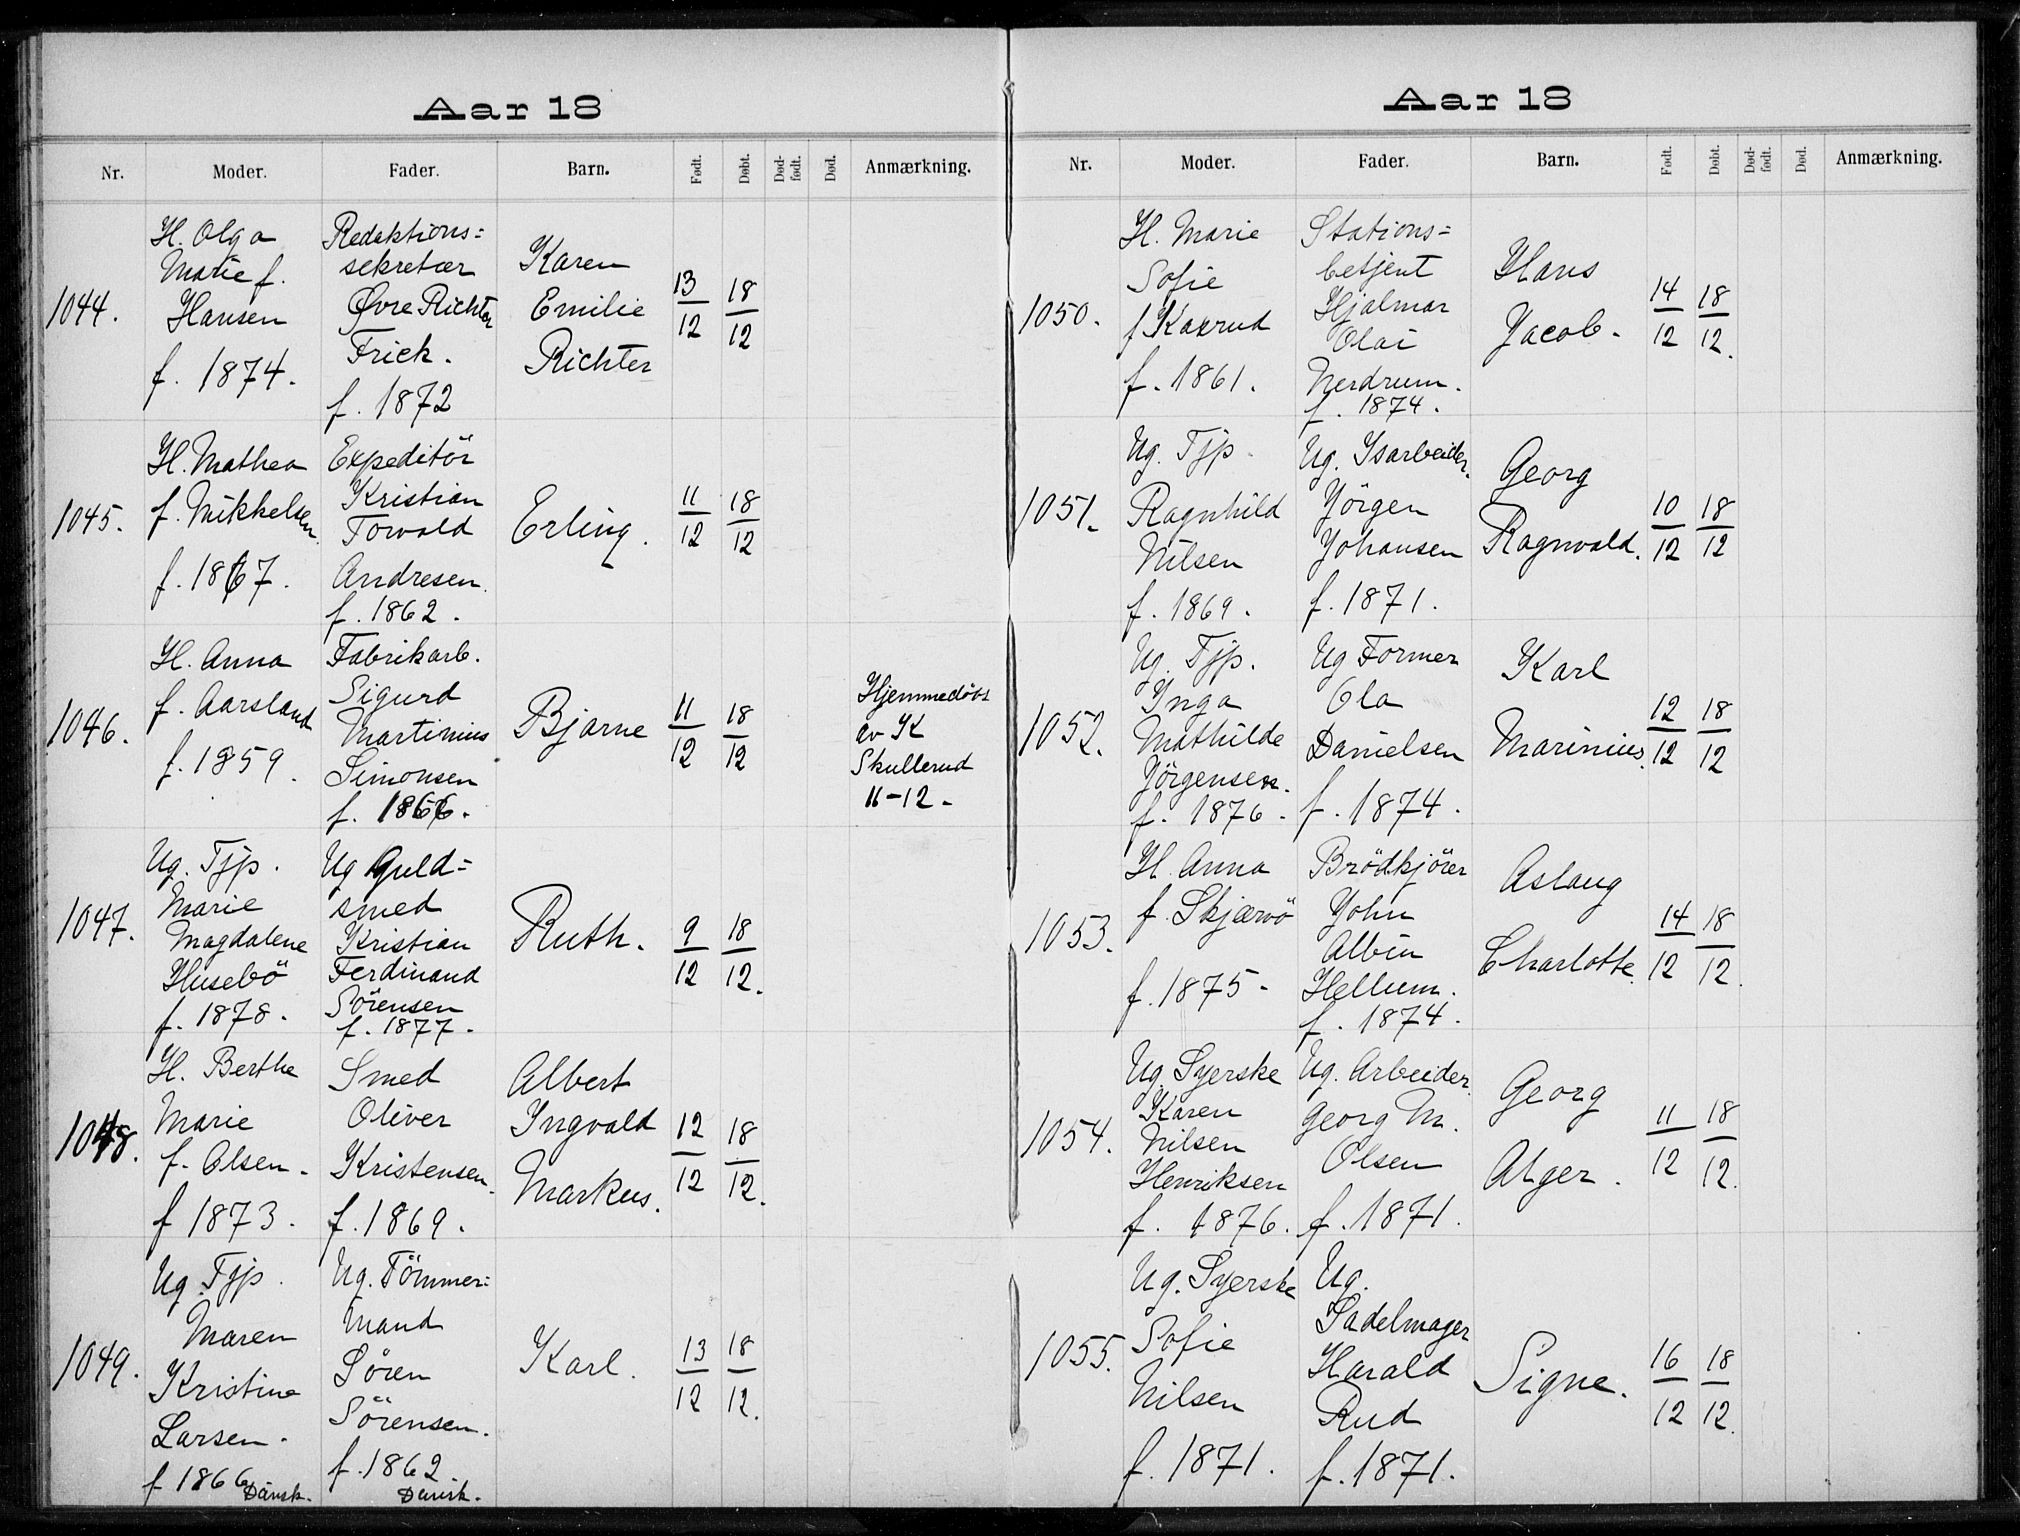 Aar 18
Nr. Moder. Fader. Barn. Født. Døbt. Død-født. Død. Anmærkning.
1044.
H. Olga
Marie f.
Hansen
f. 1874.
Redaktions=
sekretær
Øvre Richter
Frich.
f. 1872
Karen
Emilie
Richter
13/12 18/12
1045.
H. Mathea
f. Mikkelsen
f. 1867.
Expeditör
Kristian
Torvald
Andresen.
f. 1862.
Erling.
11/12 18/12
1046.
H. Anna
f. Aarsland
f. 1859.
Fabrikarb.
Sigurd
Martinius
Simonsen
f. 1866.
Bjarne
11/12 18/12
Hjemmedöbt
av K
Skullerud
11-12.
1047.
Ug. Tjp.
Marie
Magdalene
Husebö
f. 1878.
Ug Guld=
smed
Kristian
Ferdinand
Sörensen
f. 1877.
Ruth.
9/12 18/12.
1048.
H. Berthe
Marie
f. Olsen.
f 1873.
Smed
Oliver
Kristensen.
f. 1869.
Albert
Ingvald
Markus.
12/12 18/12.
1049.
Ug. Tjp.
Maren
Kristine
Larsen.
f 1866 Dansk.
Ug. Tömmer=
mand
Sören
Sörensen.
f. 1862
Dansk.
Karl.
13/12 18/12.
Aar 18
Nr. Moder. Fader. Barn. Født. Døbt. Død-født. Død. Anmærkning.
1050.
H. Marie
Sofie
f Kaxrud
f. 1861.
Stations=
betjent
Hjalmar
Olai
Nerdrum.
f. 1874.
Hans
Jacob.
14/12 18/12.
1051.
Ug. Tjp.
Ragnhild
Nilsen
f. 1869.
Ug. Isarbeider.
Jörgen
Johansen
f. 1871.
Georg
Ragnvald.
10/12 18/12
1052.
Ug. Tjp.
Inga
Mathilde
Jörgensen.
f. 1876.
Ug Former
Ola
Danielsen
f. 1874.
Karl
Marinius.
12/12 18/12
1053.
H. Anna
f. Skjærvö
f. 1875.
Brödkjörer
John
Albin
Hellum.
f. 1874.
Aslaug
Charlotte.
14/12 18/12.
1054.
Ug. Syerske
Karen
Nilsen
Henriksen
f. 1876.
Ug. Arbeider
Georg M.
Olsen
f. 1871.
Georg
Alger.
11/12 18/12.
1055.
Ug. Syerske
Sofie
Nilsen
f. 1871.
Ug.
Sadelmager
Harald
Rud
f. 1871.
Signe.
16/12 18/12.